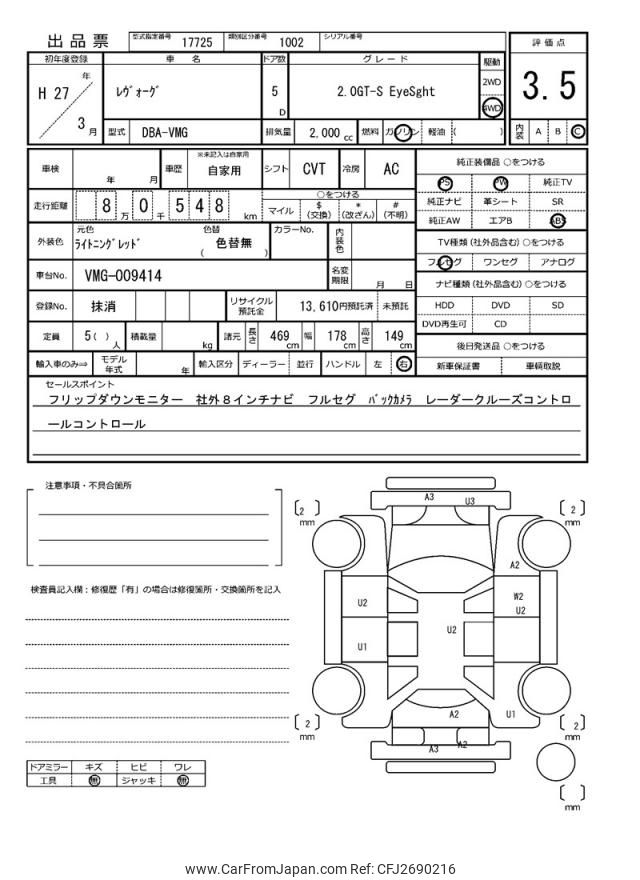 出品票 型式指定番号 17725 類別区分番号 1002 シリアル番号
評価点
3.5
内装 A B C
初年度登録 車名 ドア数 グレード 駆動
H 27 年 3 月
ﾚｳﾞｫｰｸﾞ 5 D 2.0GT-S EyeSght 2WD 4WD
型式 DBA-VMG 排気量 2,000 cc 燃料 ガソリン 軽油 ( )
車検 年 月 車歴 ※未記入は自家用 自家用 シフト CVT 冷房 AC
走行距離 8 万 0 千 5 4 8 km
○をつける
マイル $(交換) *(改ざん) #(不明)
外装色 元色 ﾗｲﾄﾆﾝｸﾞﾚｯﾄﾞ 色替 ( 色替無 ) カラーNo. 内装色
車台No. VMG-009414 名変期限 月 日
登録No. 抹消 リサイクル預託金 13,610円預託済 未預託
定員 5( ) 人 積載量 kg 諸元 長さ 469 cm 幅 178 cm 高さ 149 cm
輸入車のみ⇒ モデル年式 年 輸入区分 ディーラー 並行 ハンドル 左 右
純正装備品 ○をつける
PS PW 純正TV
純正ナビ 革シート SR
純正AW エアB ABS
TV種類 (社外品含む) ○をつける
フルセグ ワンセグ アナログ
ナビ種類 (社外品含む) ○をつける
HDD DVD SD
DVD再生可 CD
後日発送品 ○をつける
新車保証書 車輌取説
セールスポイント
フリップダウンモニター 社外８インチナビ フルセグ ﾊﾞｯｸｶﾒﾗ レーダークルーズコントロ
ールコントロール
注意事項・不具合箇所
検査員記入欄：修復歴「有」の場合は修復箇所・交換箇所を記入
ドアミラー キズ ヒビ ワレ
工具 無 ジャッキ 無
A3 U3
[ 2 ] mm [ 2 ] mm
A2
U2 W2
U2
U2
U1
A2 U1
[ 2 ] mm A3 A2 [ 2 ] mm
[ ] mm
www.CarFromJapan.com Ref: CFJ2690216